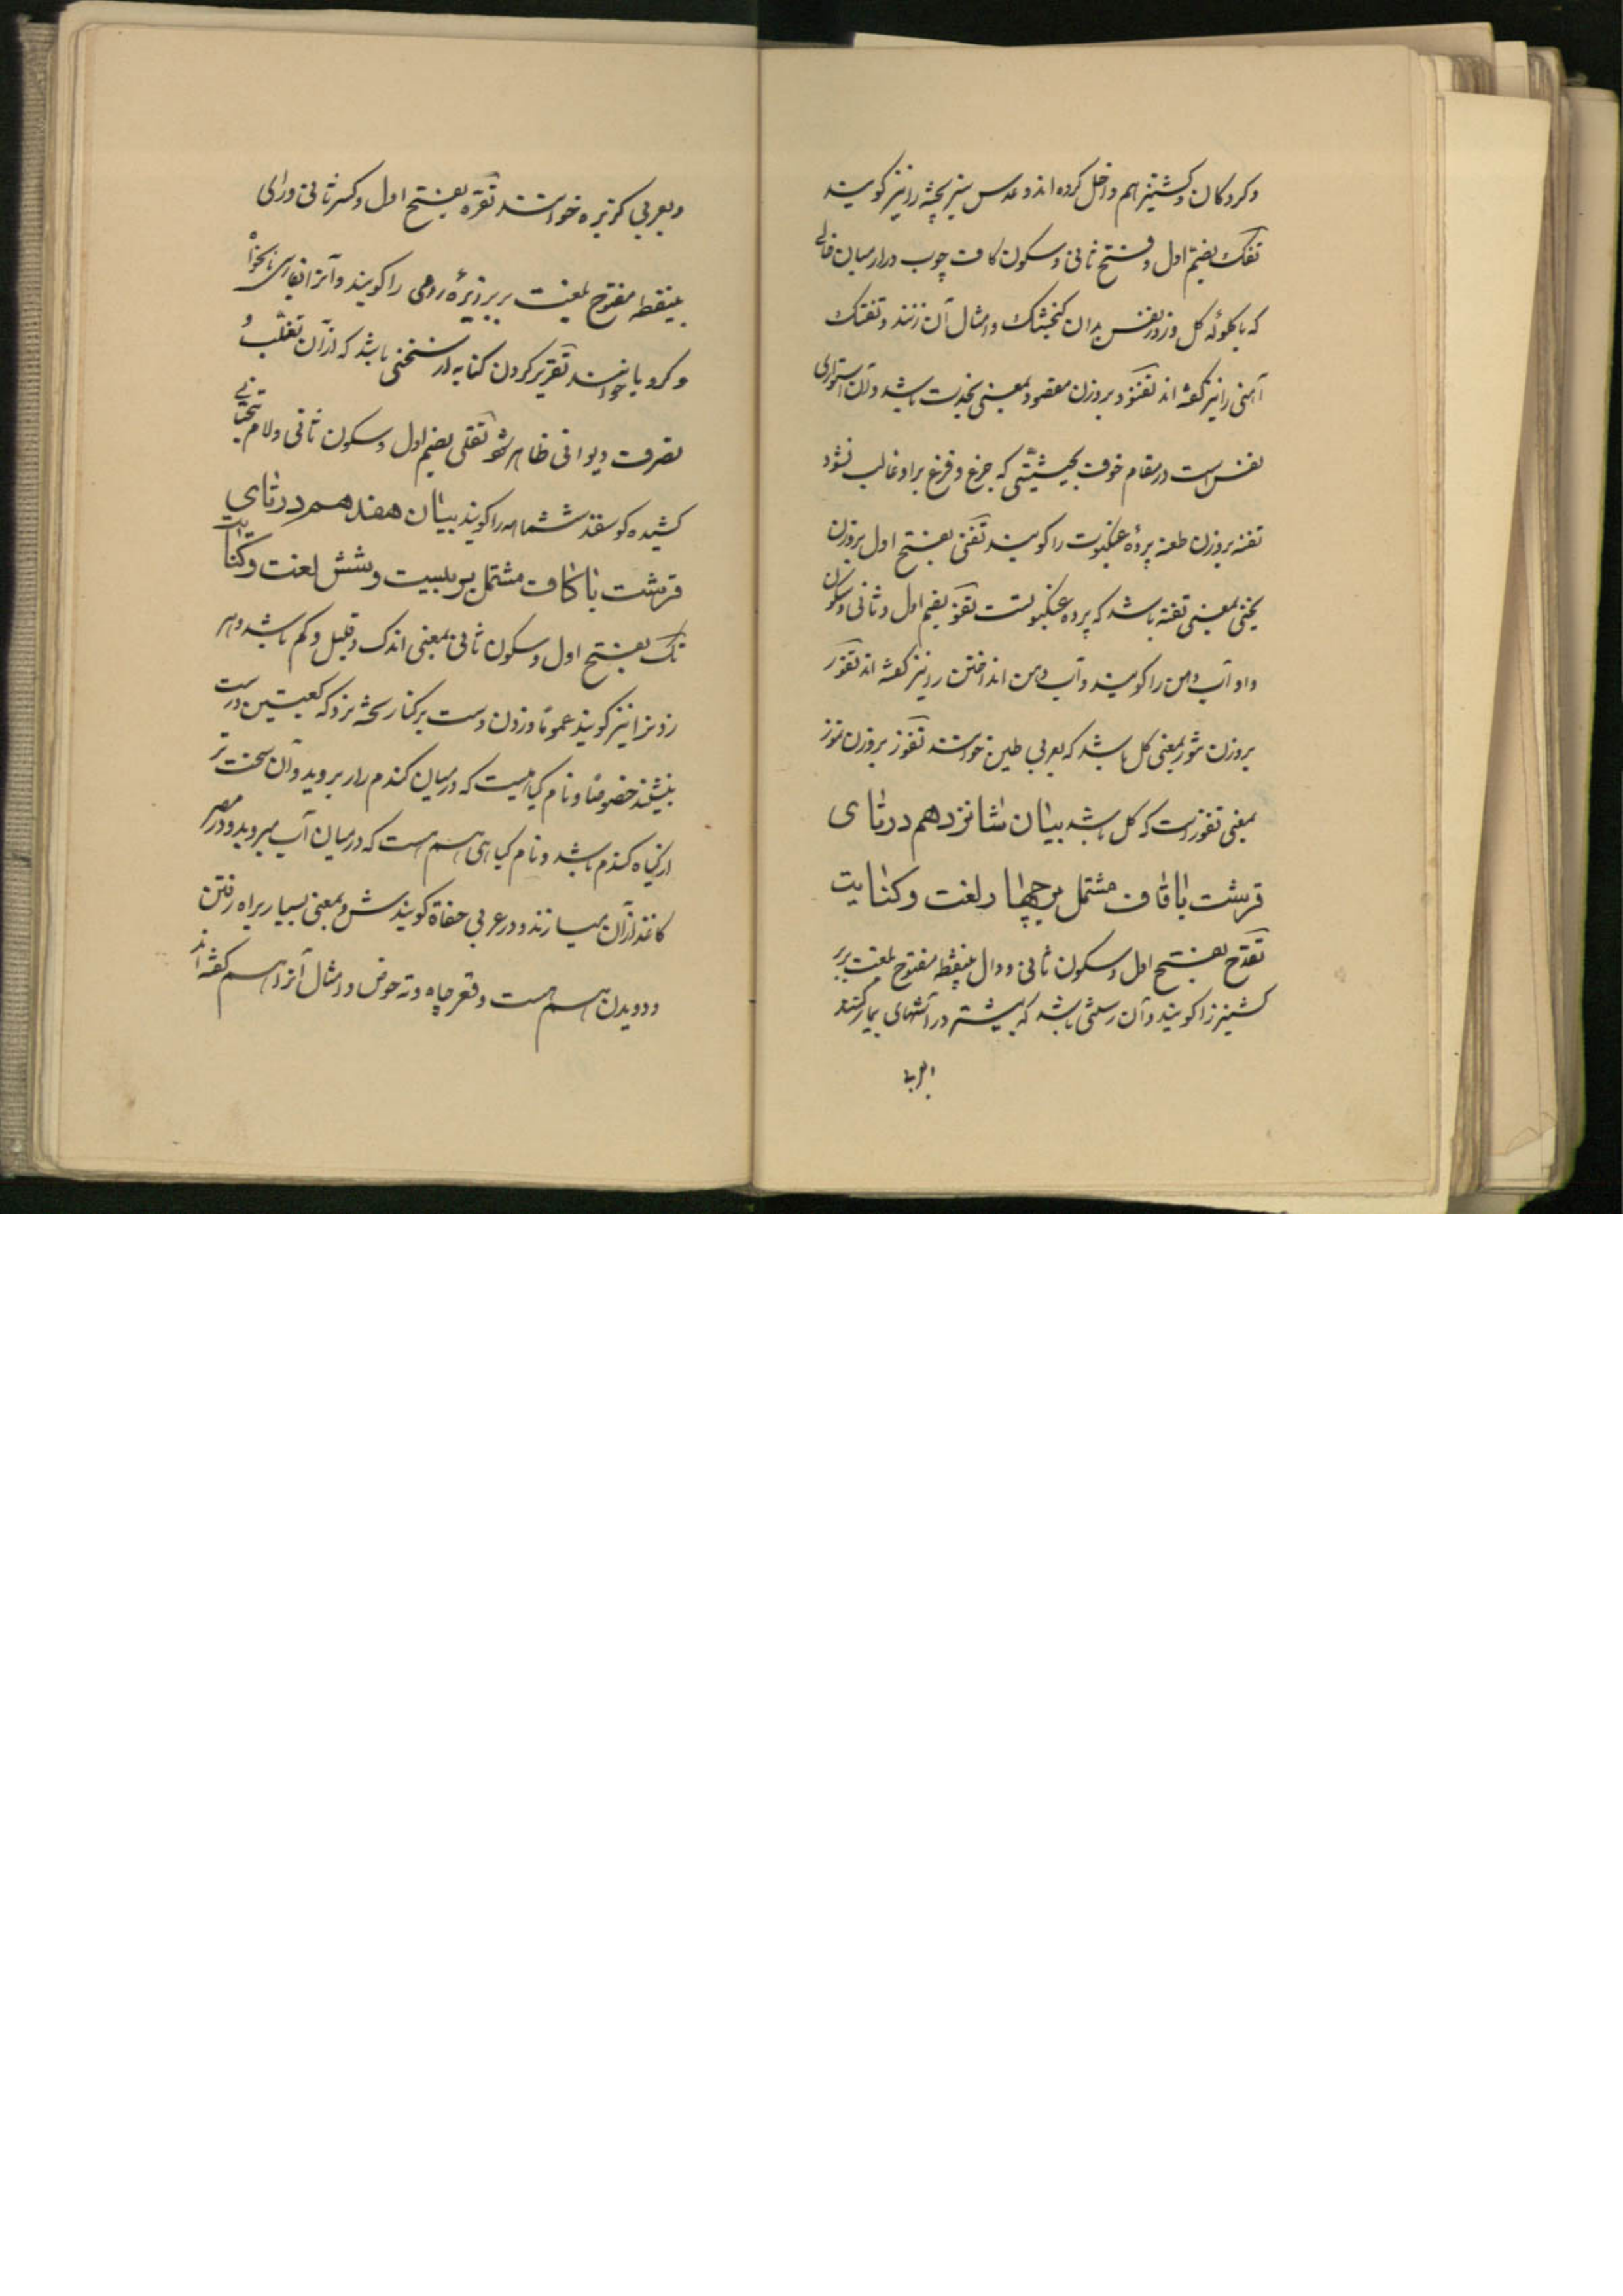 وکردکان وکشنیز هم داخل کرده اند وعدس سبز پخته را نیز کویند
تفک بضم اول وفتح ثانی وسکون کاف چوب دراز میان خالی
که با کلوله کل وزور نفس بدان کنجشک وامثال آن زنند وتفنک
آهنی را نیز کفته اند تفنود بروزن مقصود بمعنی نجدت باشد وآن استواری
نفس است در مقام خوف بحیثیتی که جزع وفزع بر او غالب نشود
تفنه بروزن طعنه پردهٔ عنکبوت را کویند تفنی بفتح اول بروزن
یخنی بمعنی تفنه باشد که پرده عنکبوتست تفو بضم اول وثانی وسکون
واو آب دهن را کویند وآب دهن انداختن را نیز کفته اند تفور
بروزن تنور بمعنی کل باشد که بعربی طین خوانند تفوز بروزن تموز
بمعنی تفور است که کل باشد بیان شانزدهم در تای
قرشت با قاف مشتمل بر چهار لغت وکنایت
تقدح بفتح اول وسکون ثانی ودال بینقطه مفتوح بلغت بربر
کشنیز را کویند وآن رستنی باشد که بیشتر در آشهای بیمار کنند
بعربی
وبعربی کزبره خوانند تقره بفتح اول وکسر ثانی ورای
بینقطه مفتوح بلغت بربر زیرهٔ رومی را کویند وآنرا بفارسی نانخواه
وکرویا خوانند تقریر کردن کنایه از سخنی باشد که از آن تغلب و
تصرف دیوانی ظاهر شود تقلی بضم اول وسکون ثانی ولام بتحتانی
کشیده کوسفند ششماهه را کویند بیان هفدهم در تای
قرشت با کاف مشتمل بر بیست وشش لغت وکنایت
تک بفتح اول وسکون ثانی بمعنی اندک وقلیل وکم باشد وهر
زدنرا نیز کویند عموما وزدن دست بر کنار تخته نرد که کعبتین درست
بنشیند خصوصا ونام کیاهیست که در میان کندم زار بروید وآن سخت تر
از کیاه کندم باشد ونام کیاهی هم هست که در میان آب میروید ودر مصر
کاغذ از آن میسازند ودر عربی حفاة کویندش وبمعنی بسیار براه رفتن
ودویدن هم هست وقعر چاه وته حوض وامثال آنرا هم کفته اند